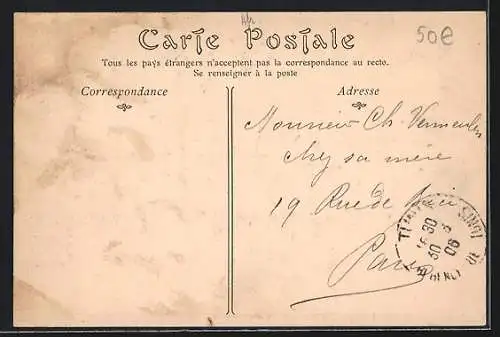 Afr
50e
Carte Postale
Tous les pays étrangers n'acceptent pas la correspondance au recto.
Se renseigner à la poste
Correspondance
Adresse
Monsieur Ch. Vermeulen
chez sa mère
19 Rue de
Paris
16 30
30 3
06